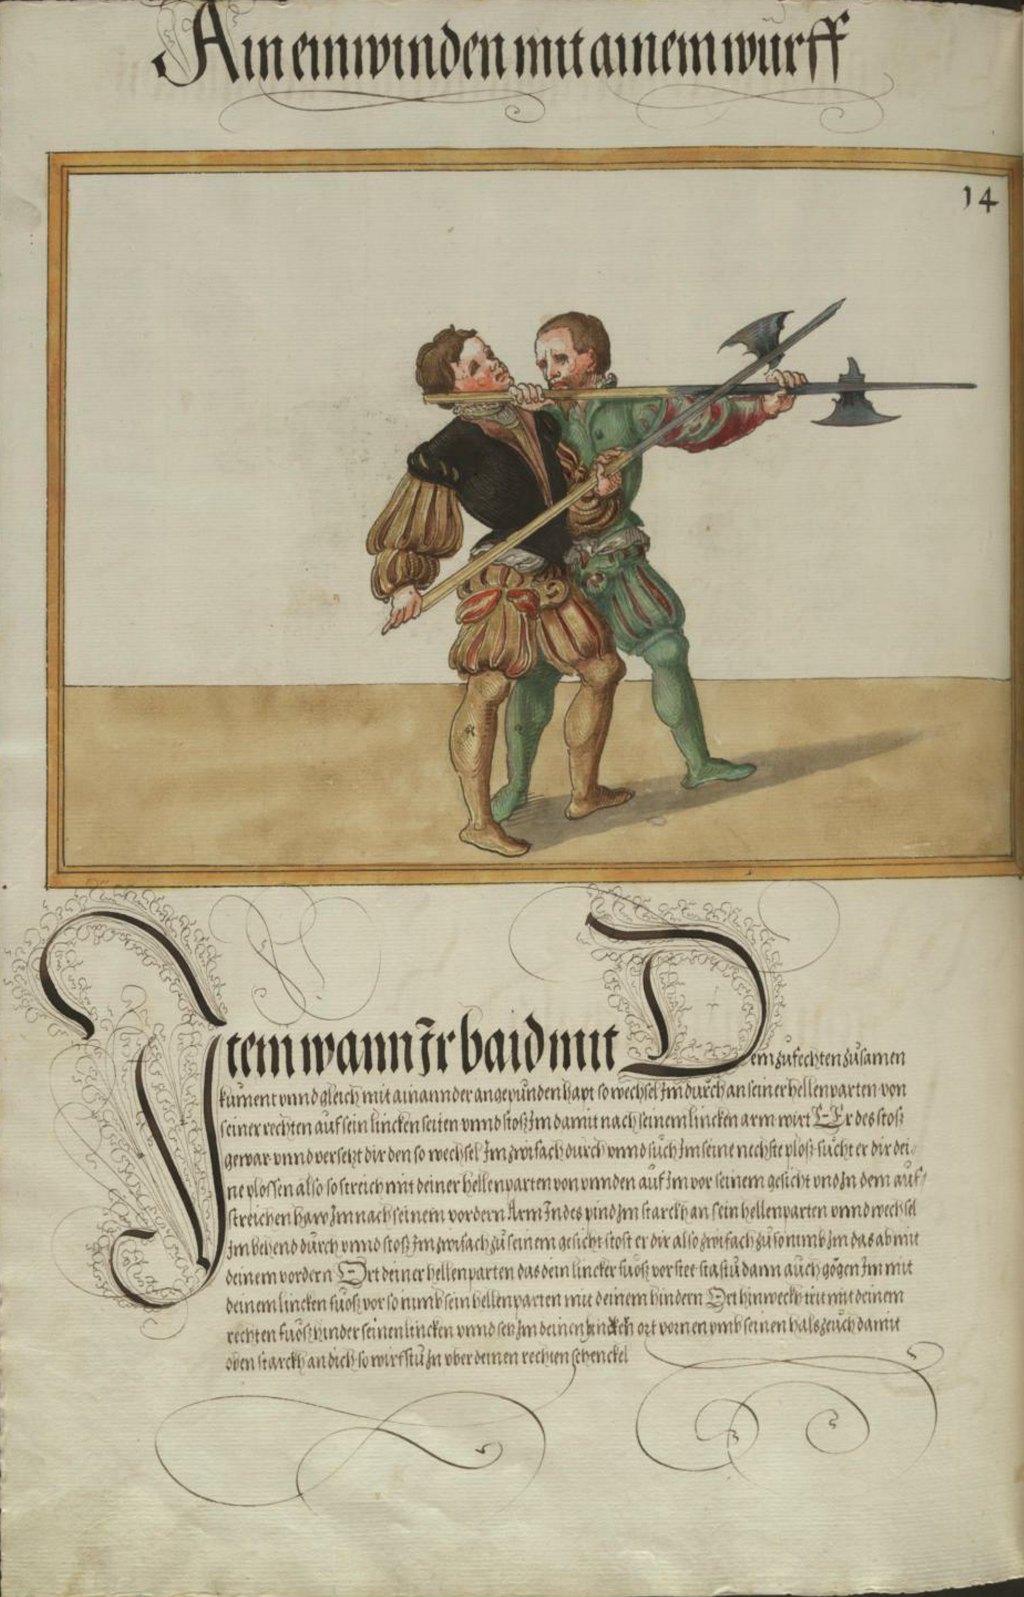 Ain einwinden mit ainem wurff
14
Item wann Ir baid mit Dem zufechten zusamen
kument vnnd gleich mit ainannder angepunden hapt so wechsel Im durch an seiner hellenparten von
seiner rechten auf sein lincken seiten vnnd stoß Im damit nach seinem lincken arm wirt Er des stoß
gewar vnnd versetzt dir den so wechsel Im zwifach durch vnnd such Im seine nechste ploß sucht er dir dei
ne plossen also so streich mit deiner hellenparten von vnnden auf Im vor seinem gesicht vnd In dem auf
streichen haw Im nach seinem vordern Arm Indes pind Im starckh an sein hellenparten vnnd wechsel
Im behend durch vnnd stoß Im zwifach zu seinem gesicht stost er dir also zwifach zu so nimb Im das ab mit
deinem vordern Ort deiner hellenparten das dein lincker fuoß vor stee stastu dann auch gögen Im mit
deinem lincken fuoß vor so nimb sein hellenparten mit deinem hindern Ort hinweckh trit mit deinem
rechten fuoß hinder seinen lincken vnnd setz Im deinen ort vornen vmb seinen hals zeuch damit
oben starckh an dich so wirfstu In vber deinen rechten schenckel